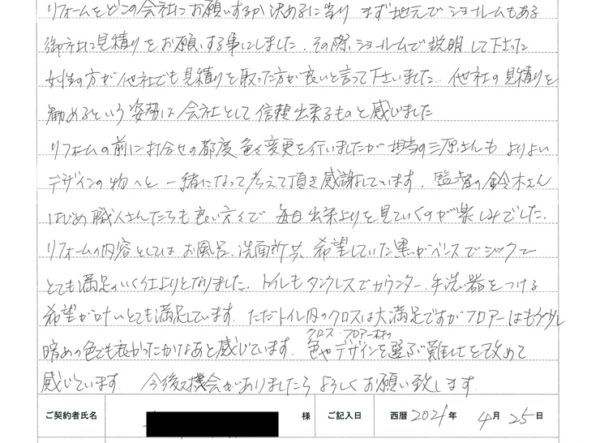 リフォームをどこの会社にお願いするか決めるに当り まず地元でショールームもある
御社に見積りをお願いする事にしました。その際、ショールームで説明して下さった
女性の方が他社でも見積りを取った方が良いと言って下さいました。他社の見積りを
勧めるという姿勢は会社として信頼出来るものと感じました
リフォームの前に打合せの都度色々変更を行いましたが担当の三原さんも よりよい
デザインの物へと 一緒になって考えて頂き感謝しています。監督の鈴木さん
はじめ職人さんたちも良い方々で 毎日出来上りを見ていくのが楽しみでした。
リフォームの内容としては お風呂、洗面所共 希望していた黒がベースでシックで
とても満足のいく仕上りとなりました。トイレもタンクレスでカウンター、手洗器をつける
希望が叶いとても満足しています。ただトイレ内のクロスは大満足ですがフロアーはもう少し
暗めの色でも良かったかなあと感じています。クロス・フロアー材の色やデザインを選ぶ難しさを改めて
感じています 今後も機会がありましたらよろしくお願い致します
ご契約者氏名 様 ご記入日 西暦 2021年 4月 25日